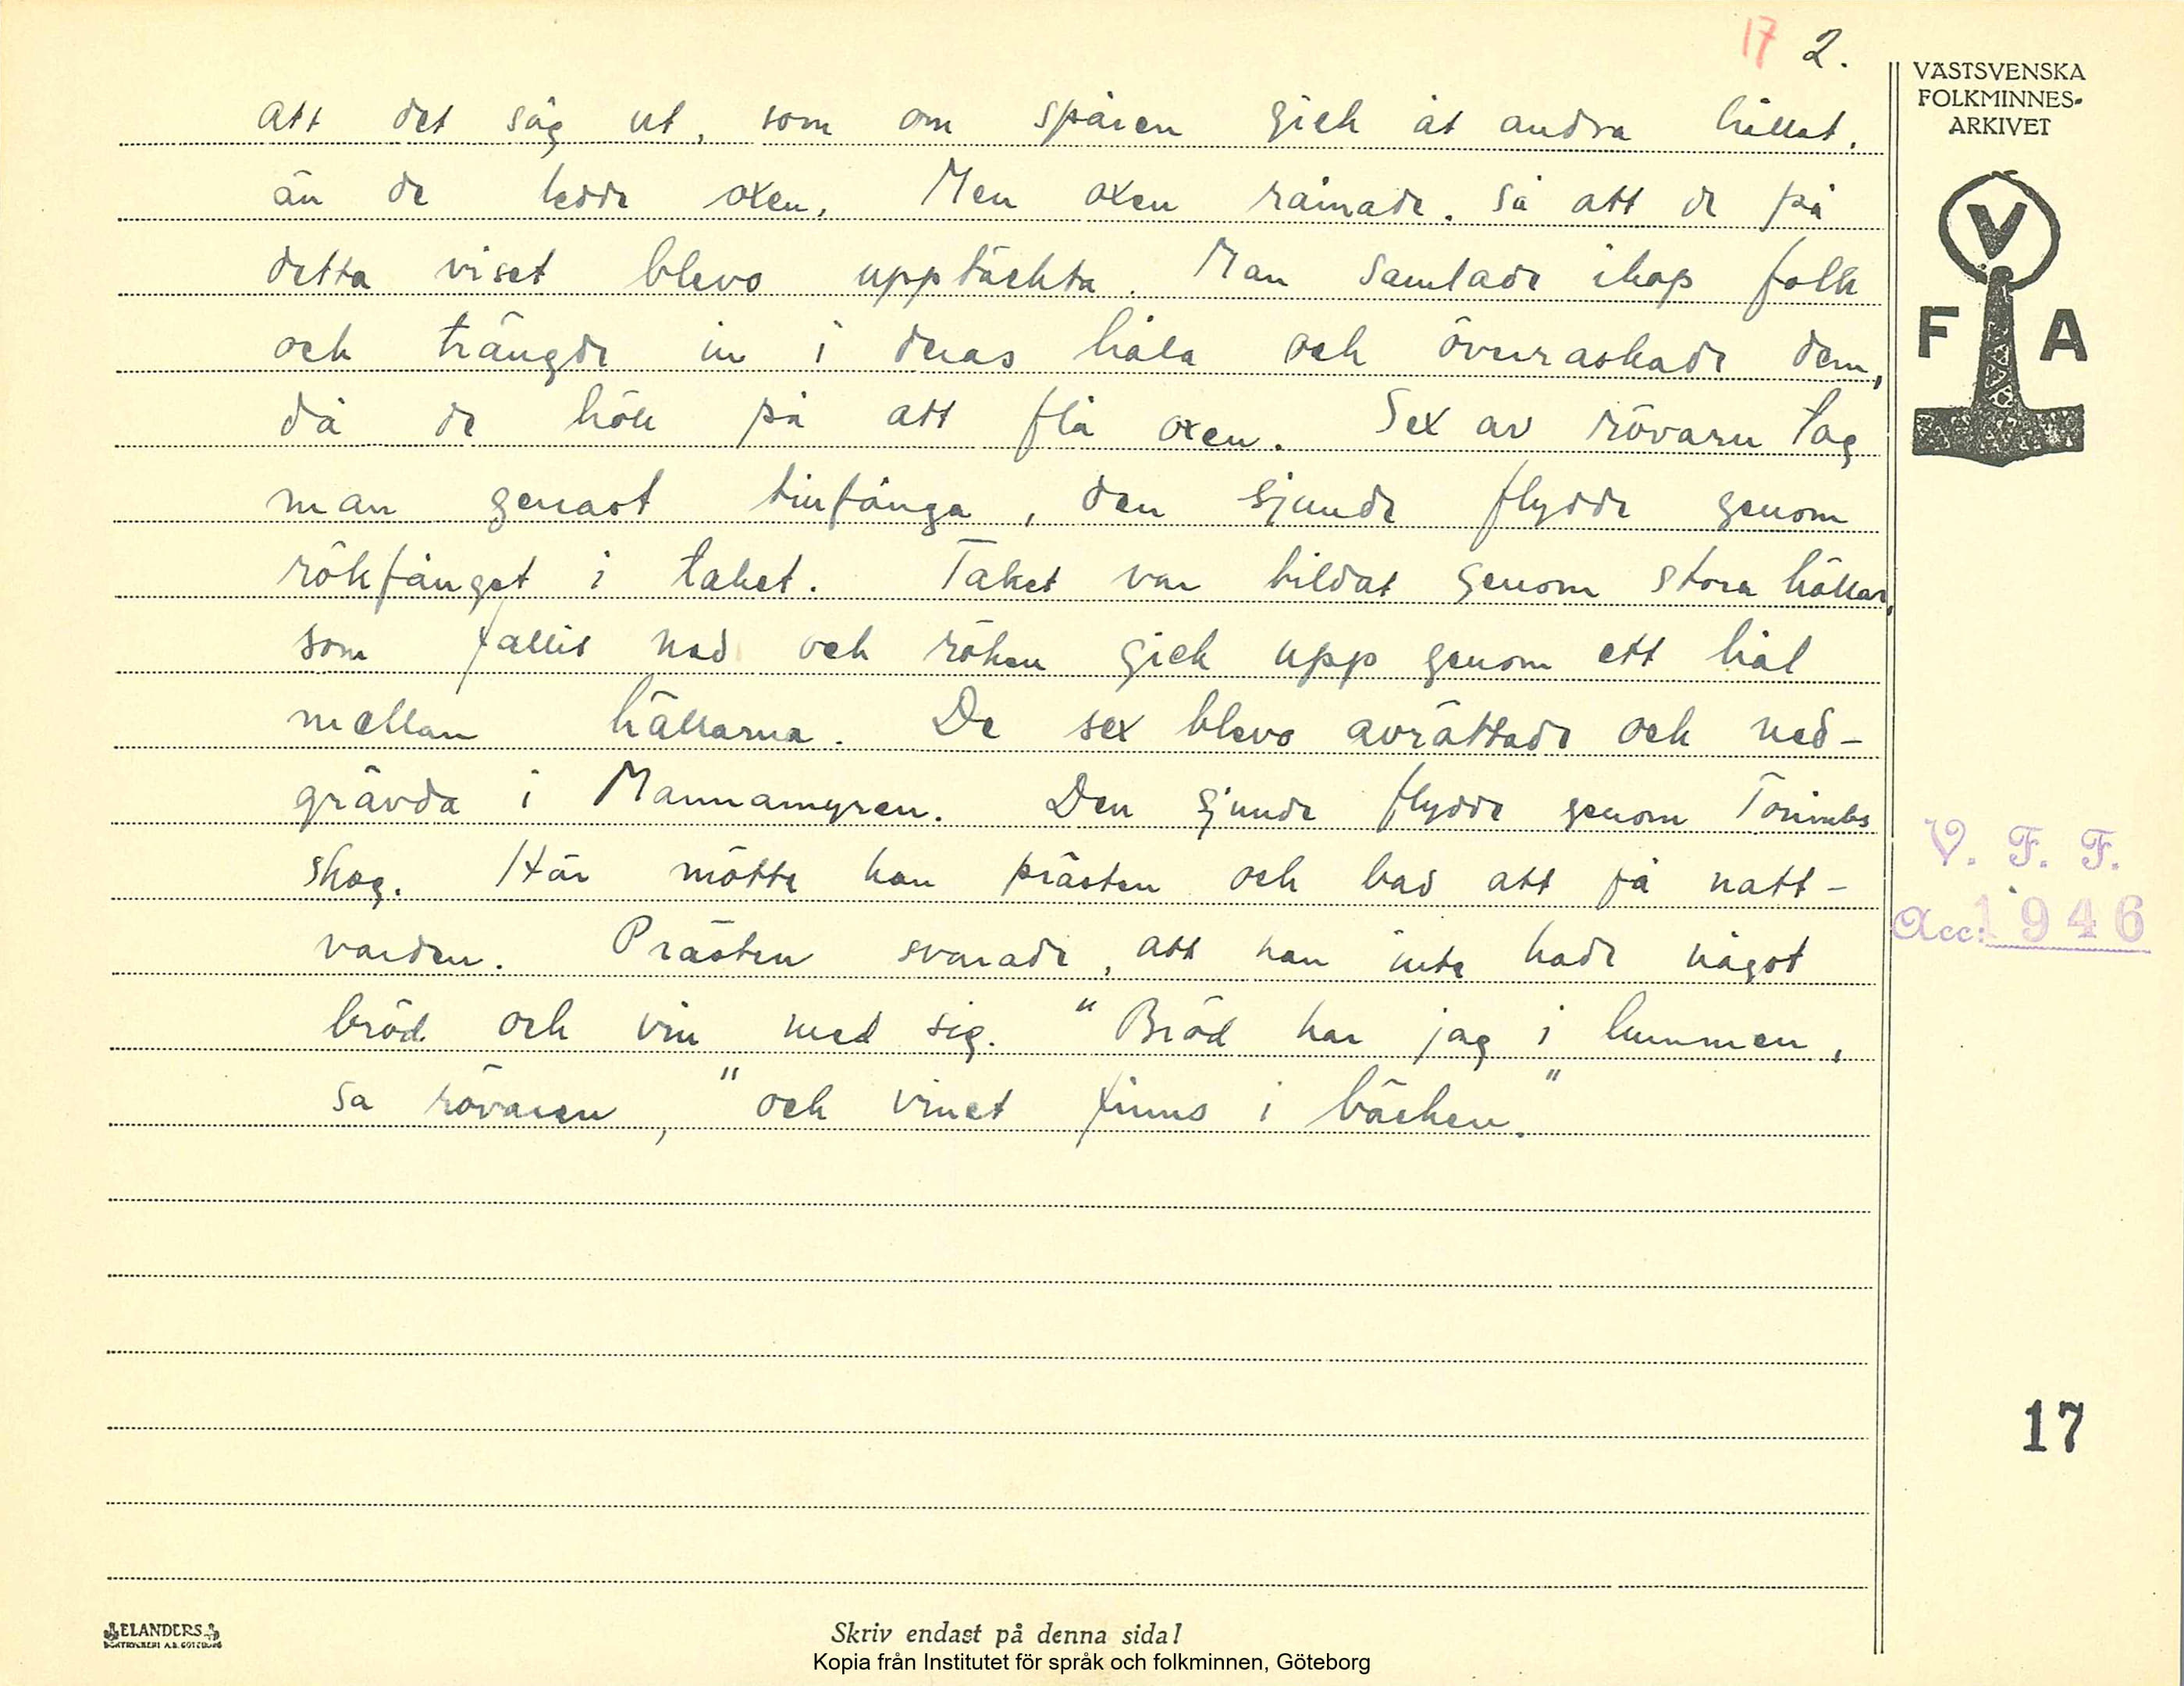 17 2.
VÄSTSVENSKA
FOLKMINNES-
ARKIVET
V
F A
att det såg ut, som om spåren gick åt andra hållet,
än de ledde oxen. Men oxen råmade. så att de på
detta viset blevo upptäckta. Man samlade ihop folk
och trängde in i deras håla och överraskade dem,
då de höll på att flå oxen. Sex av rövarn tog
man genast tillfånga, den sjunde flydde genom
rökfånget i taket. Taket var bildat genom stora hällar,
som fallit ned och röken gick upp genom ett hål
mellan hällarna. De sex blevo avrättade och ned-
grävda i Mannamyren. Den sjunde flydde genom
skog. Här mötte han prästen och bad att få natt-
varden. Prästen svarade, att han inte hade något
bröd och vin med sig. "Bröd har jag i lummen,
sa rövaren, "och vinet finns i bäcken."
V. F. F.
Acc: 1946
17
ELANDERS
BOKTRYCKERI A.B. GÖTEBORG
Skriv endast på denna sida!
Kopia från Institutet för språk och folkminnen, Göteborg